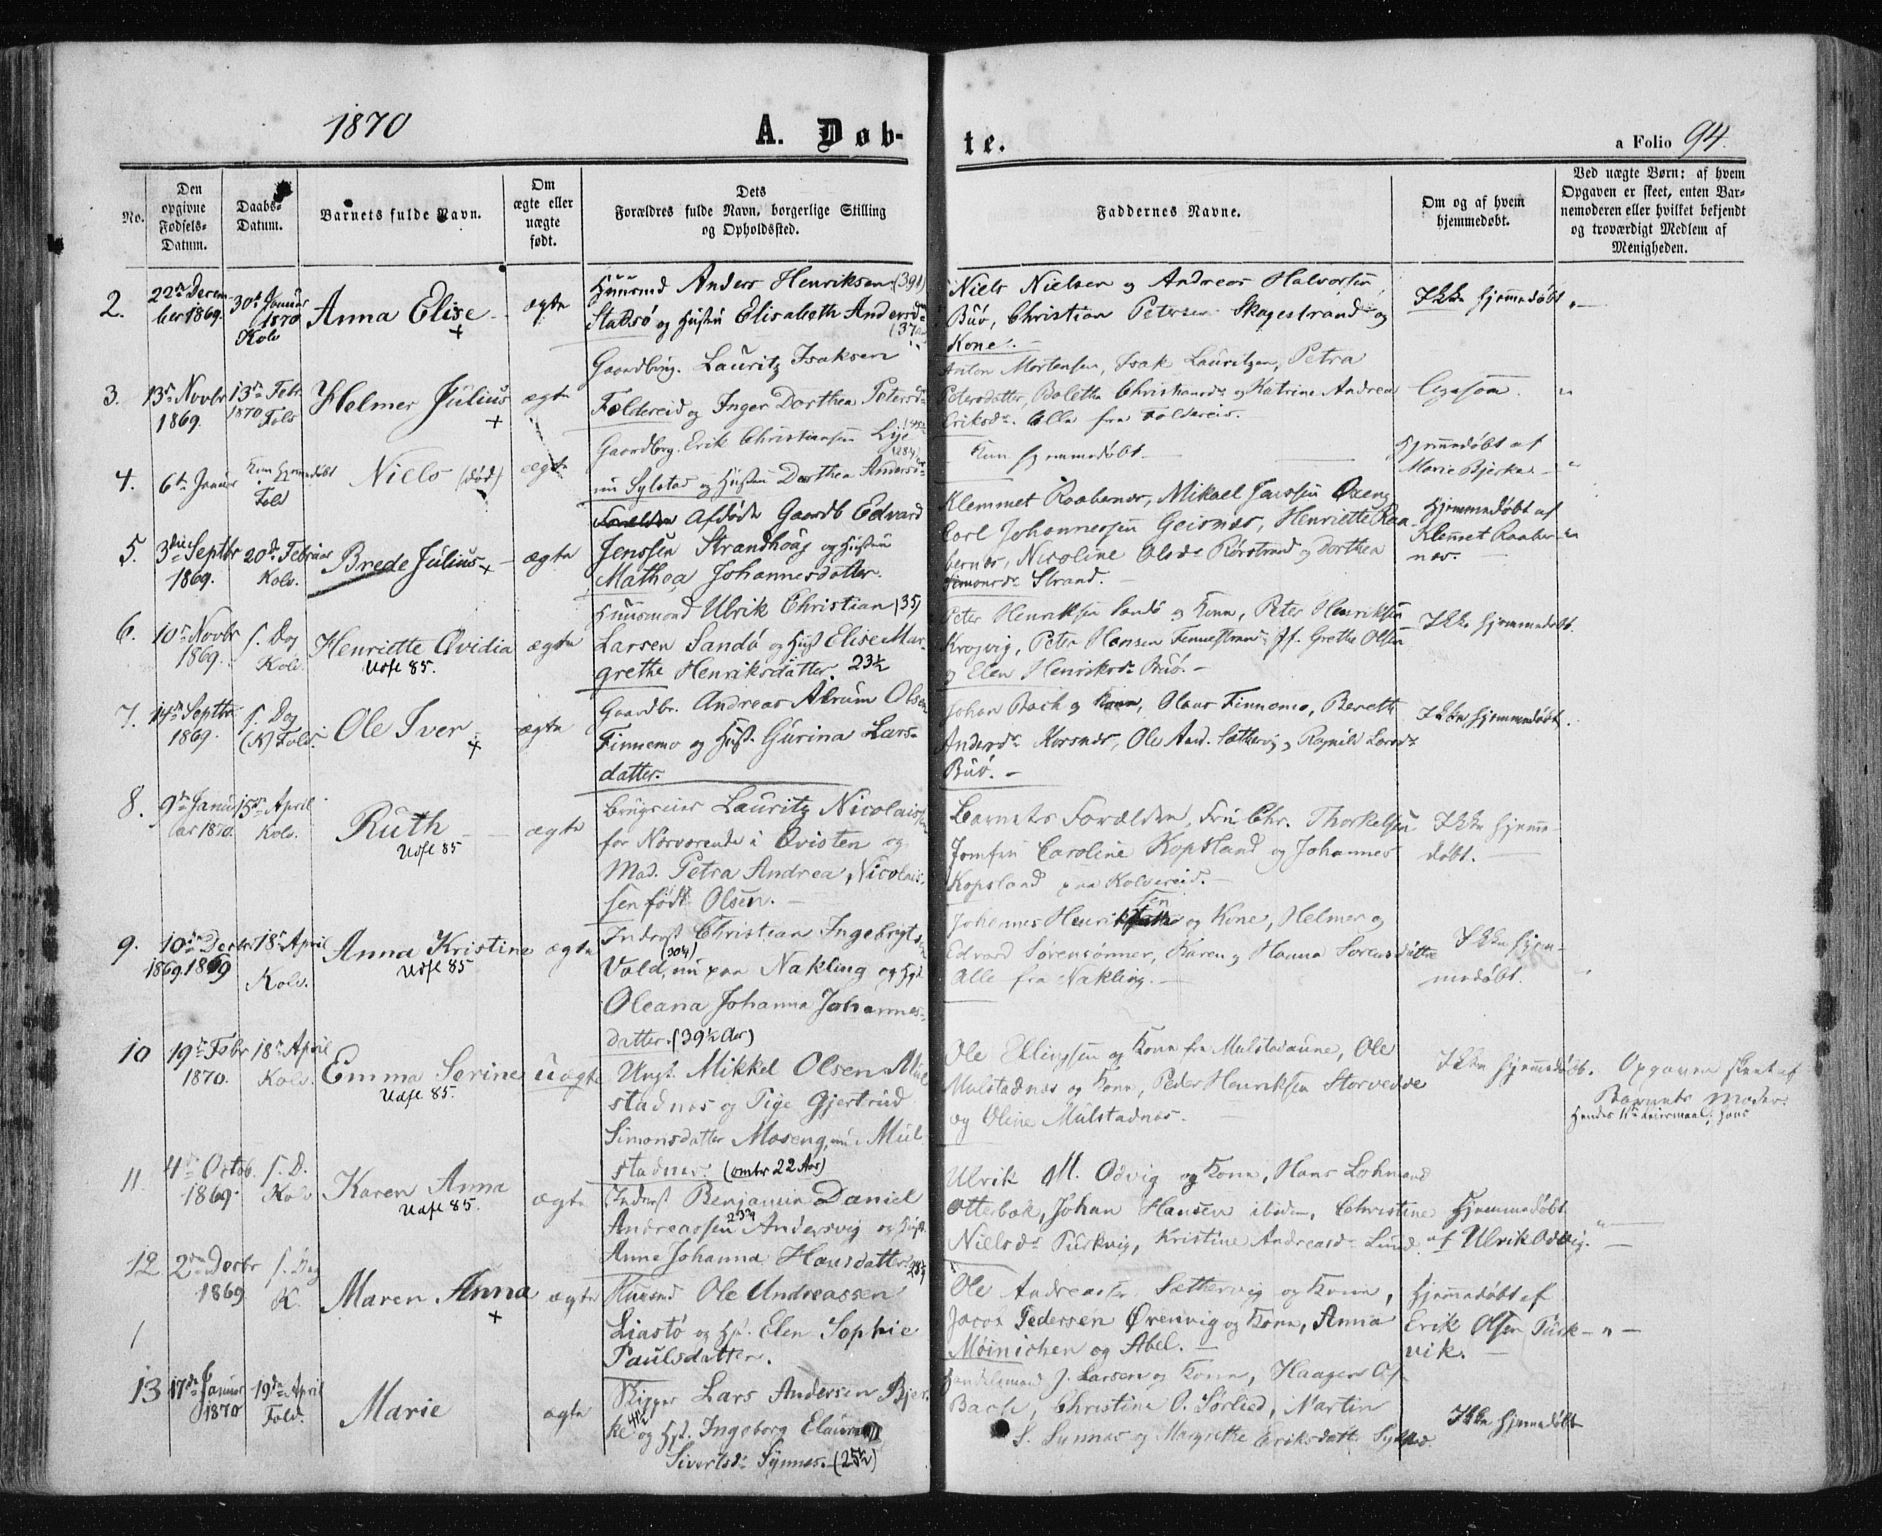 1870
A. Døb-
te.
a Folio 94.
No.
Den
opgivne
Fødsels-
Datum.
Daabs-
Datum.
Barnets fulde Navn.
Om
ægte eller
uægte
født.
Dets
Forældres fulde Navn, borgerlige Stilling
og Opholdssted.
Faddernes Navne.
Om og af hvem
hjemmedøbt.
Ved uægte Børn: af hvem
Opgaven er skeet, enten Bar-
nemoderen eller hvilket bekjendt
og troværdigt Medlem af
Menigheden.
2.
22de Decem
ber 1869.
30te Januar
1870
Kolv
Anna Elise
+
ægte
Huusmd Anders Henriksen (39)
og Hustru Elisabeth Andersd.
Niels Nielsen og Andreas Halvorsen
Buø, Christian Petersen Skagestrand og
Kone.
Ikke hjemmedøbt
3.
13de Novbr
1869.
13de Febr
1870 Fold
Helmer Julius
+
ægte
Gaardbrug. Lauritz Isaksen
Foldereid og Inger Dorthea Petersd.
Anton Mortensen, Isak Lauritzen, Petra
Petersdatter, Bolette Christiansd. og Katrine Andrea
Eriksd. Alle fra Foldereid.
Ligesom.
4.
6te Januar
Kun hjemmedøbt
Fold
Niels (død)
ægte
Gaardbrg. Erik Christiansen
nu Sylstad og Hustru Dorthea Andersd.
Kun hjemmedøbt.
Hjemmedøbt af
Marie Bjerke
5.
3die Septbr
1869.
20de Februar
Kolv.
Brede Julius
+
ægte
Afdøde Gaardb Edvard
Jenssen Strandhaug og Hustru
Mathea Johannesdatter.
Klemmet Raabernes, Mikael Jenssen
Carl Johannessen Geisnes, Henriette Raa
bernes, Nicoline Olsd. Rørstrand og Dorthea
Simonsd. Strand.
Hjemmedøbt af
Klemet Raaber-
nes.
6.
10de Novbr
1869.
s. Dag
Kolv.
Henriette Ovidia
Udfl 85.
ægte
Huusmand Ulrik Christian (35)
Larsen Sandø og Hust Elise Mar-
grethe Henriksdatter. 23½
Peter Henriksen Sandø og Kone, Peter Henriksen
Krogvig, Peter Hansen Finnestrand, Jf. Grethe Olsen
og Elen Henriksd. Buø.
Ikke hjemmedøbt.
7.
14de Septbr
1869.
s. Dag
(K) Fold.
Ole Iver
+
ægte
Gaardbr. Andreas Olsen
Finnemo og Hust. Gurina Lars-
datter.
Johan Bach og Kone, Olaus Finnemo, Bereth
Andersd. Horsnes, Ole And. Sættervig og Ragnild Larsd.
Buø.
Ikke hjemmedøbt.
8.
9de Janu
ar 1870.
15de April
Kolv.
Ruth
Udfl 85
ægte
Lauritz Nicolaissen
for Nærværende i Qvisten og
Mad. Petra Andrea Nicolais-
sen født Olsen.
Barnets Forældre, Fru Chr. Thorkelsen
Jomfru Caroline Kopsland og Johannes
Kopsland paa Kolvereid.
Ikke hjemme-
døbt.
9.
10de Decbr
1869 1869
18de April
Kolv.
Anna Kristine
Udfl 85
ægte
Inderst Christian Ingebrigts
Vold, nu paa Nakling og Hst
(30¼)
Oleana Johanna Johannes-
datter. (39½ Aar)
Johannes Henriksen og Kone, Helmer og
Edvard Sørensønner, Karen og Hanna Sørensdøttre
Alle fra Nakling.
Ikke hjem-
medøbt.
10
19de Febr
1870.
18de April
Kolv.
Emma Serine
Udfl 85.
uægte
Ungk. Mikkel Olsen Mul
stadnes og Pige Gjertrud
Simonsdatter Moseng, nu i Mul
stadnes. (ombr 22 Aar)
Ole Ellingsen og Kone fra Mulstadaune, Ole
Mulstadnes og Kone, Peder Henriksen Storvedde
og Oline Mulstadnes.
Ikke hjemmedøbt.
Opgaven skeet af
Barnets Moder.
Hendes 1ste Leiermaal; hans
11.
4de Octob.
1869.
s. D.
Kolv
Karen Anna
Udfl 85.
ægte
Inderst Benjamin Daniel
Andreassen Andersvig og Hust.
Anne Johanna Hansdatter 28¼
Ulrik M. Odvig og Kone, Hans Lohmand
Otterbæk, Johan Hansen ibidem, Christine
Nielsd. Purkvig, Kristine Andreasd. Lund.
Hjemmedøbt
af Ulrik Odvig.
12
2den Decbr
1869
s. Dag
K.
Maren Anna
+
ægte
Huusmd Ole Andreassen
Liastø og Hst. Elen Sophie
Paulsdatter.
Ole Andreassen Sættervig og Kone,
Jacob Pedersen Ørenvig og Kone, Anna
Møinichen og Abel.
Hjemmedøbt af
Erik Olsen Purk-
vik.
13
17de Januar
1870
19de April
Fold.
Marie
ægte
Skipper Lars Andersen Bjer-
ke og Hst. Ingeborg
Sivertsd. Synnes. (25½)
Handelsmand J. Larsen og Kone, Haagen
Bach, Christine O. Sørlied, Martin
S. Synnes og Margrethe Eriksdatter
Ikke hjemmedøbt